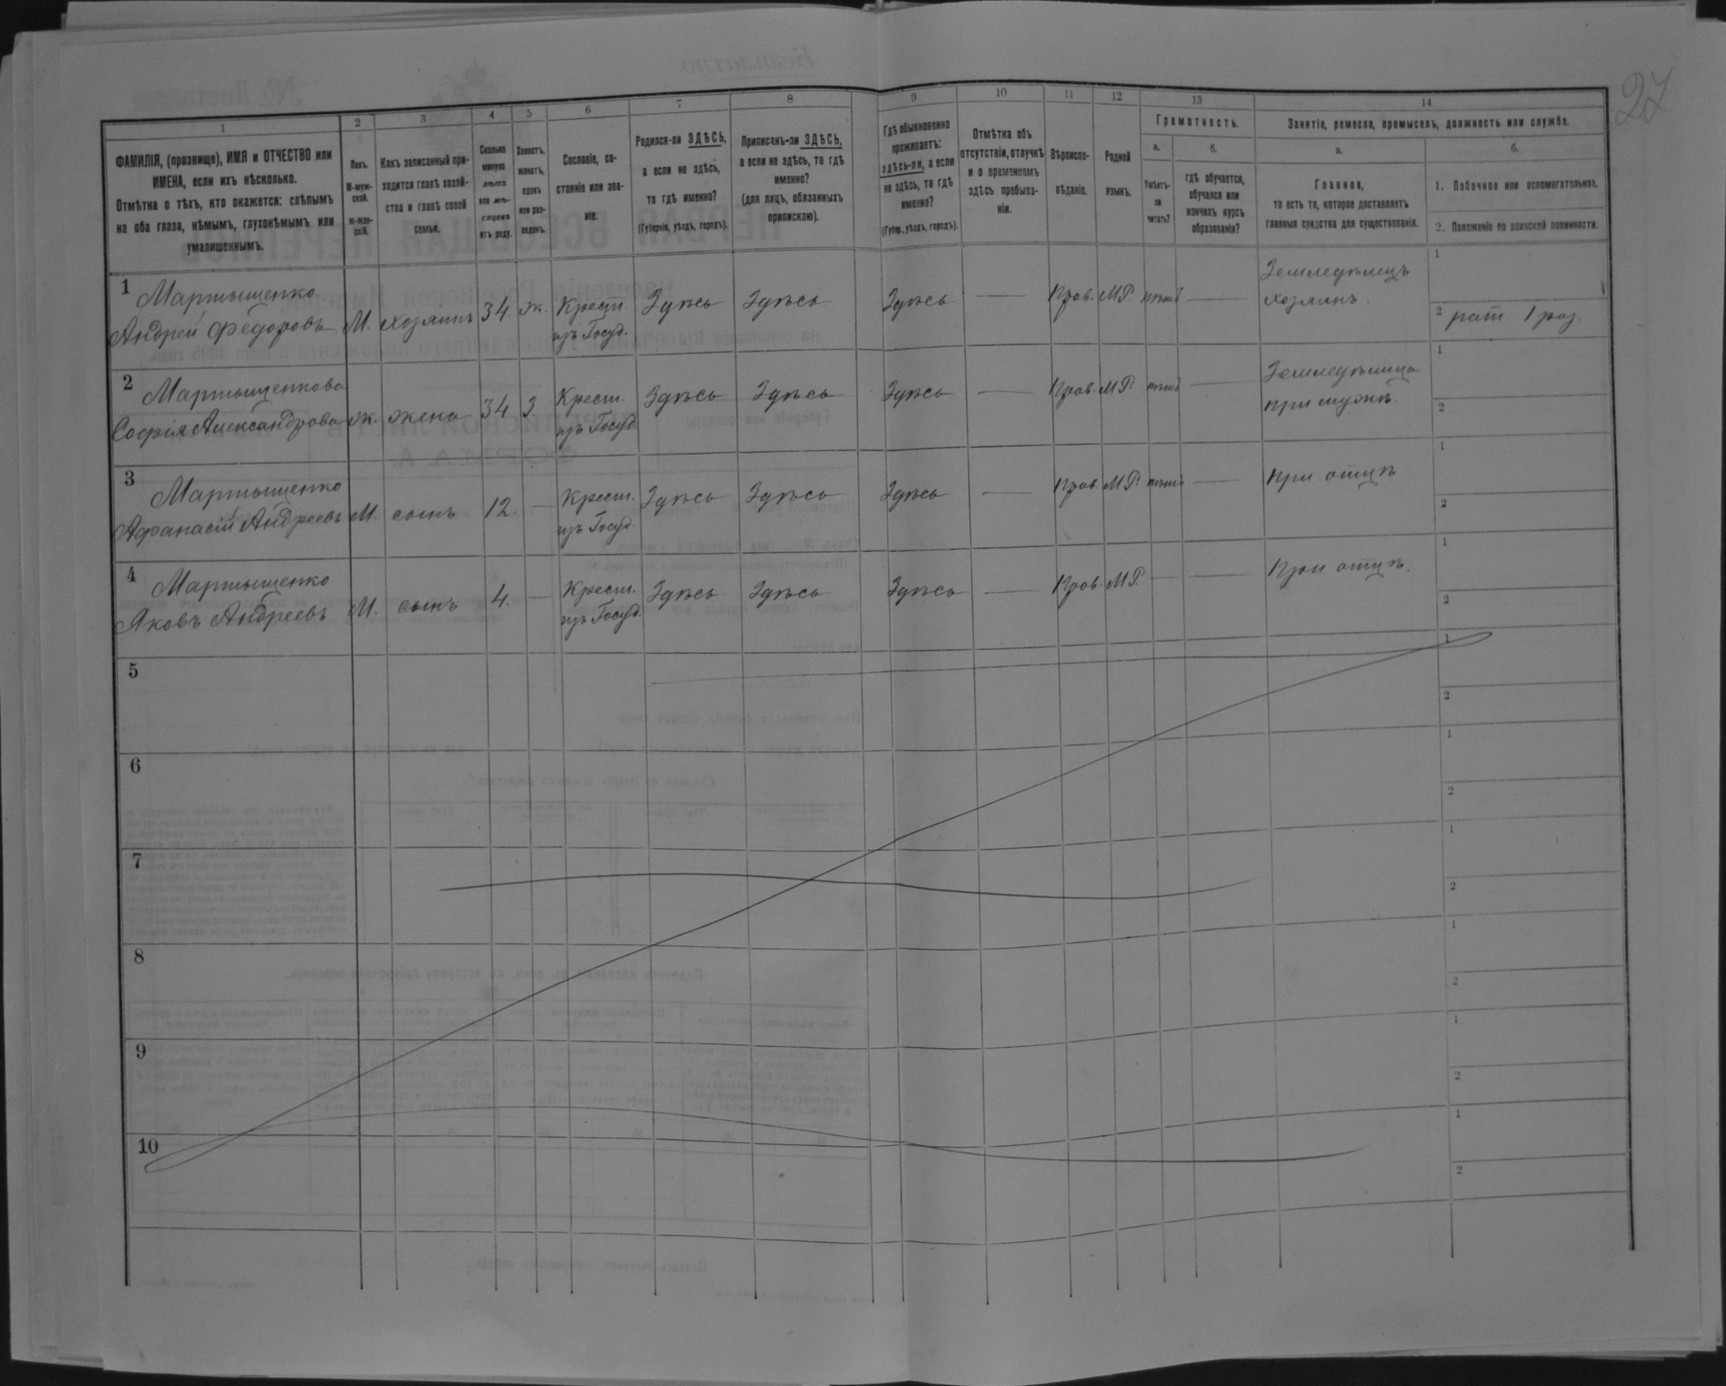 27
1
2
3
4
5
6
7
8
9
10
11
12
13
14
ФАМИЛІЯ, (прозвище), ИМЯ и ОТЧЕСТВО или
ИМЕНА, если ихъ нѣсколько.
Отмѣтка о тѣхъ, кто окажется: слѣпымъ
на оба глаза, нѣмымъ, глухонѣмымъ или
умалишеннымъ.
Полъ.
М-муж-
ской.
Ж-жен-
скій.
Какъ записанный при-
ходится главѣ хозяй-
ства и главѣ своей
семьи.
Сколько
минуло
лѣтъ
или мѣ-
сяцевъ
отъ роду.
Холостъ,
женатъ,
вдовъ
или раз-
веденъ.
Сословіе, со-
стояніе или зва-
ніе.
Родился-ли ЗДѢСЬ,
а если не здѣсь,
то гдѣ именно?
(Губернія, уѣздъ, городъ).
Приписанъ-ли ЗДѢСЬ,
а если не здѣсь, то гдѣ
именно?
(для лицъ, обязанныхъ
припискою).
Гдѣ обыкновенно
проживаетъ:
здѣсь-ли, а если
не здѣсь, то гдѣ
именно?
(Губер., уѣздъ, городъ).
Отмѣтка объ
отсутствіи, отлучкѣ
и о временномъ
здѣсь пребыва-
ніи.
Вѣроиспо-
вѣданіе.
Родной
языкъ.
Грамотность.
а.
Умѣетъ-
ли
читать?
б.
гдѣ обучается,
обучался или
кончилъ курсъ
образованія?
Занятіе, ремесло, промыселъ, должность или служба.
а.
Главное,
то есть то, которое доставляетъ
главныя средства для существованія.
б.
1. Побочное или вспомогательное.
2. Положеніе по воинской повинности.
1 Мартыщенко
Андрей Федоровъ М. хозяинъ 34. ж. Крест. изъ Госуд. Здѣсь Здѣсь Здѣсь — Прав. М.Р. — Земледѣлецъ хозяинъ.
1
2 рат. 1 раз.
2 Мартыщенкова
Софія Александрова ж. жена 34 З. Крест. изъ Госуд. Здѣсь Здѣсь Здѣсь — Прав. М.Р. — при мужѣ.
1
2
3 Мартыщенко
Афанасій Андреевъ М. сынъ 12. — Крест. изъ Госуд. Здѣсь Здѣсь Здѣсь — Прав. М.Р. — при отцѣ
1
2
4 Мартыщенко
Яковъ Андреевъ М. сынъ 4. — Крест. изъ Госуд. Здѣсь Здѣсь Здѣсь — Прав. М.Р. — — При отцѣ.
1
2
5
1
2
6
1
2
7
1
2
8
1
2
9
1
2
10
1
2